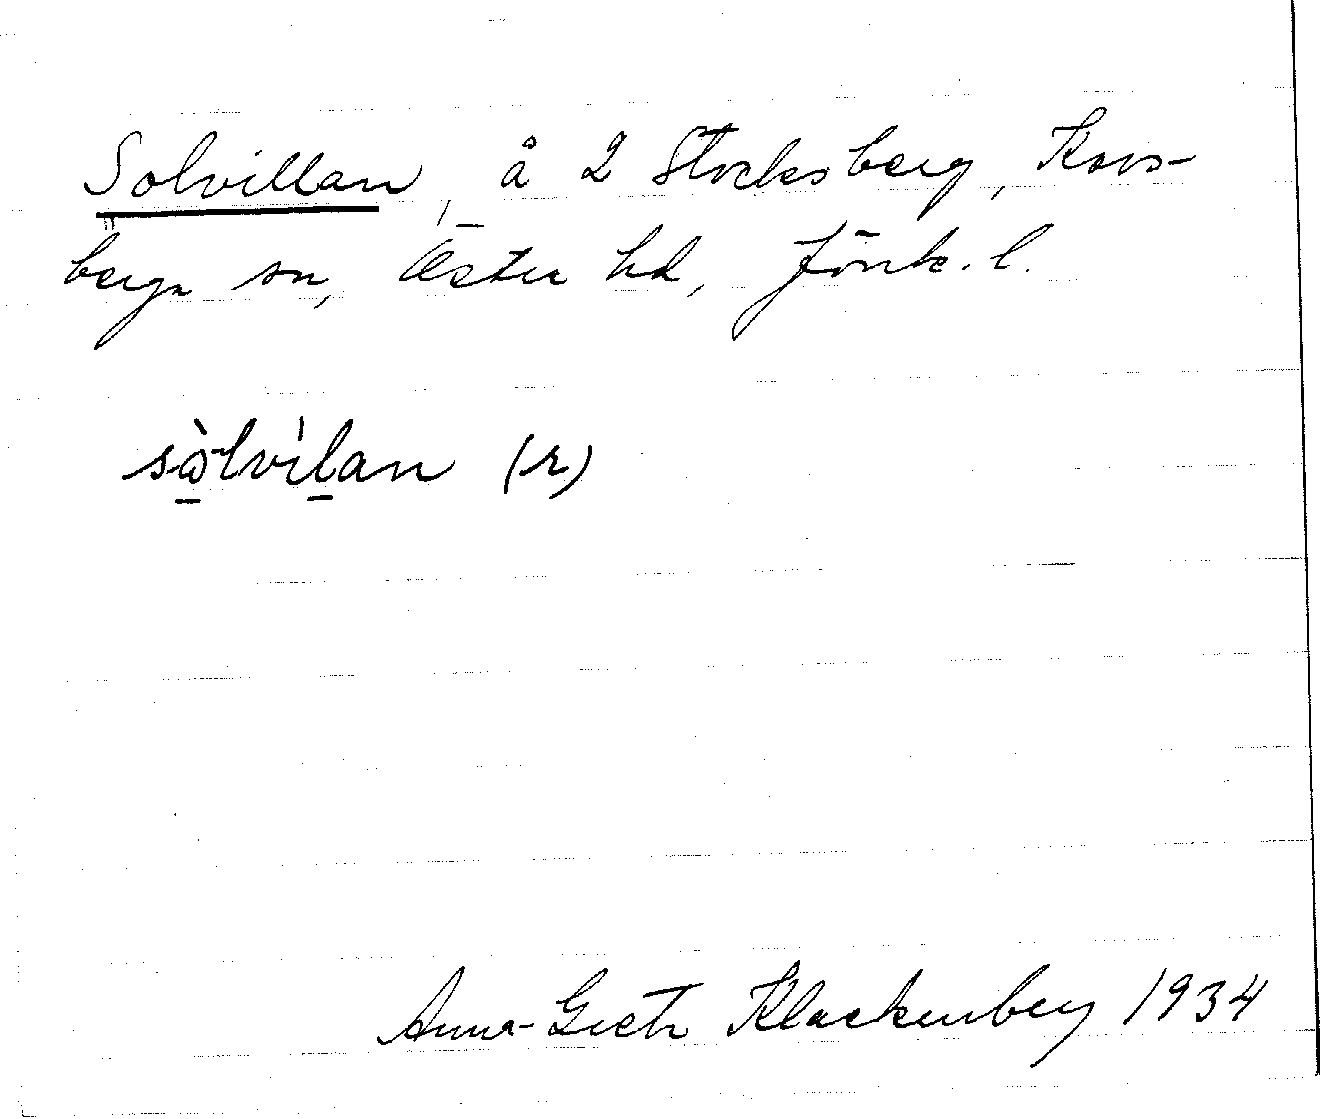 Solvillan, å 2 Stocksberg, Kors-
berga sn, Öster hd, Jönk. l.
sòlvílan (r)
Anna-Greta Klackenberg 1934